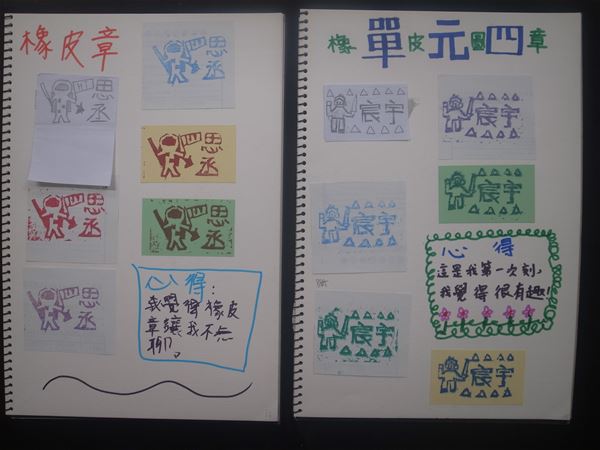 橡皮章
思
丞
思
丞
思
丞
思
丞
思
丞
思
丞
心得:
我覺得橡皮
章讓我不無
聊。
橡單皮元圖四章
宸宇
宸宇
宸宇
宸宇
宸宇
宸宇
心得
這是我第一次刻,
我覺得很有趣!